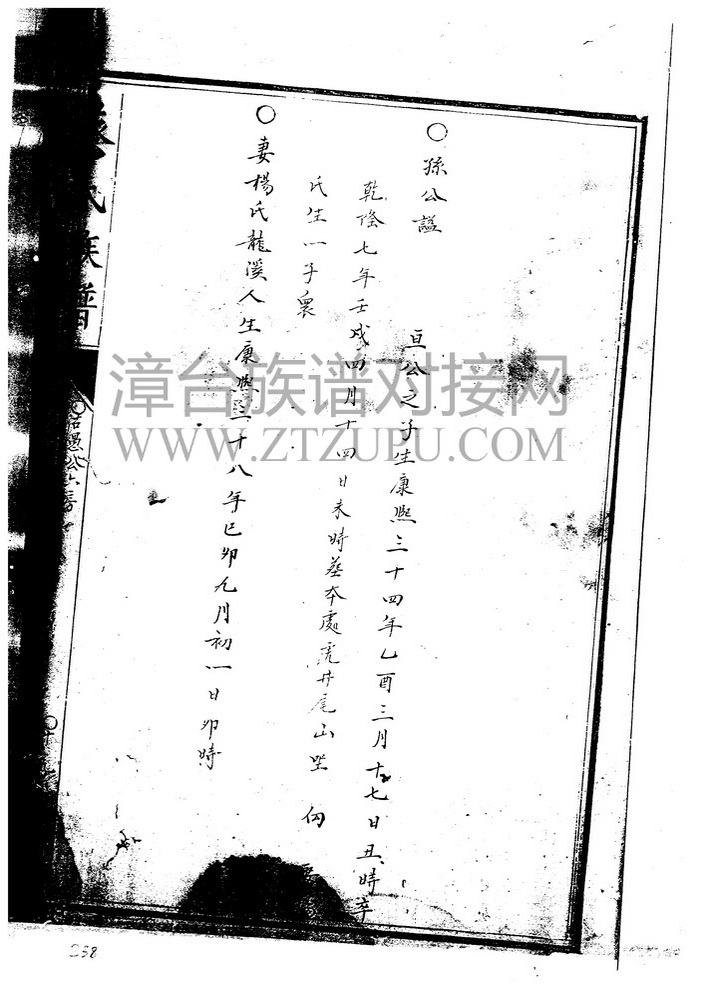 ○孫公謚
亘公之子生康熙三十四年乙酉三月十七日丑時卒
乾隆七年壬戌四月十四日未時葬本處 井尾山坐 向
氏生一子
○妻楊氏龍溪人生康熙三十八年已卯九月初一日卯時
氏族譜
愚公六房
漳台族谱对接网
WWW.ZTZUPU.COM
238